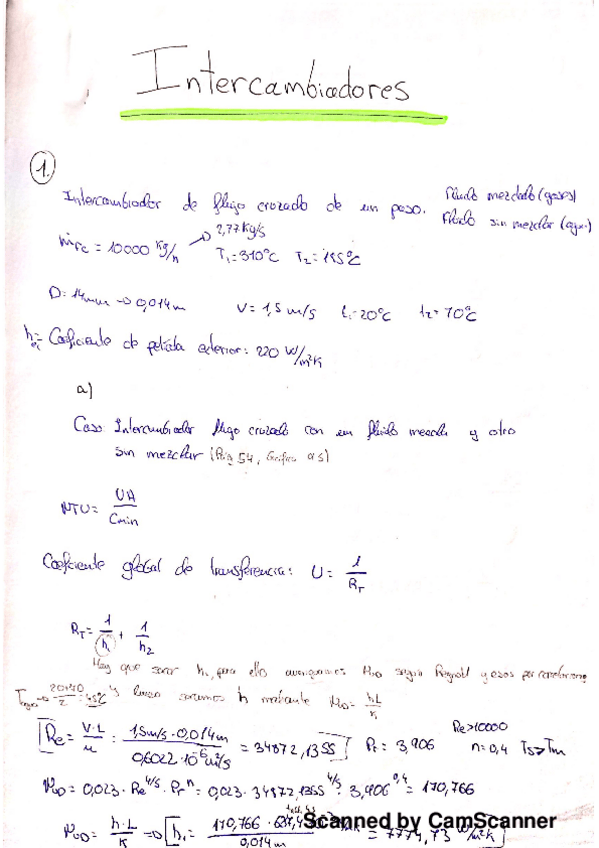 Intercambiadores
1.
Intercambiador de flujo cruzado de un paso. Fluido mezclado (gases)
Fluido sin mezclar (agua)
ṁFC = 10000 Kg/h → 2,77 Kg/s T₁ = 310°C T₂ = 195°C
D = 14mm → 0,014m V = 1,5 m/s t₁ = 20°C t₂ = 70°C
Coeficiente de película exterior: 220 W/m²K
a)
Caso: Intercambiador flujo cruzado con un fluido mezcla y otro
sin mezclar (Pág 54, Gráfica a5)
NTU = UA / Cmin
Coeficiente global de transferencia: U = 1 / R_T
R_T = 1/h₁ + 1/h₂
Hay que sacar h₁, para ello averiguamos Nu∞ según Reynold y
= (20+70)/2 = 45°C y luego sacamos h mediante Nu∞ = hL/K
Re = V·L/u = 1,5m/s · 0,014m / 0,6022·10⁻⁶ m²/s = 34872,1355 Pr = 3,906 Re>10000 n=0,4 Ts>Tm
Nu∞ = 0,023 · Re^4/5 · Pr^n = 0,023 · 34872,1355^4/5 · 3,906^0,4 = 170,766
Nu∞ = h·L/K ⇒ h₁ = 170,766 · / 0,014m = 7774,73 W/m²K
Scanned by CamScanner